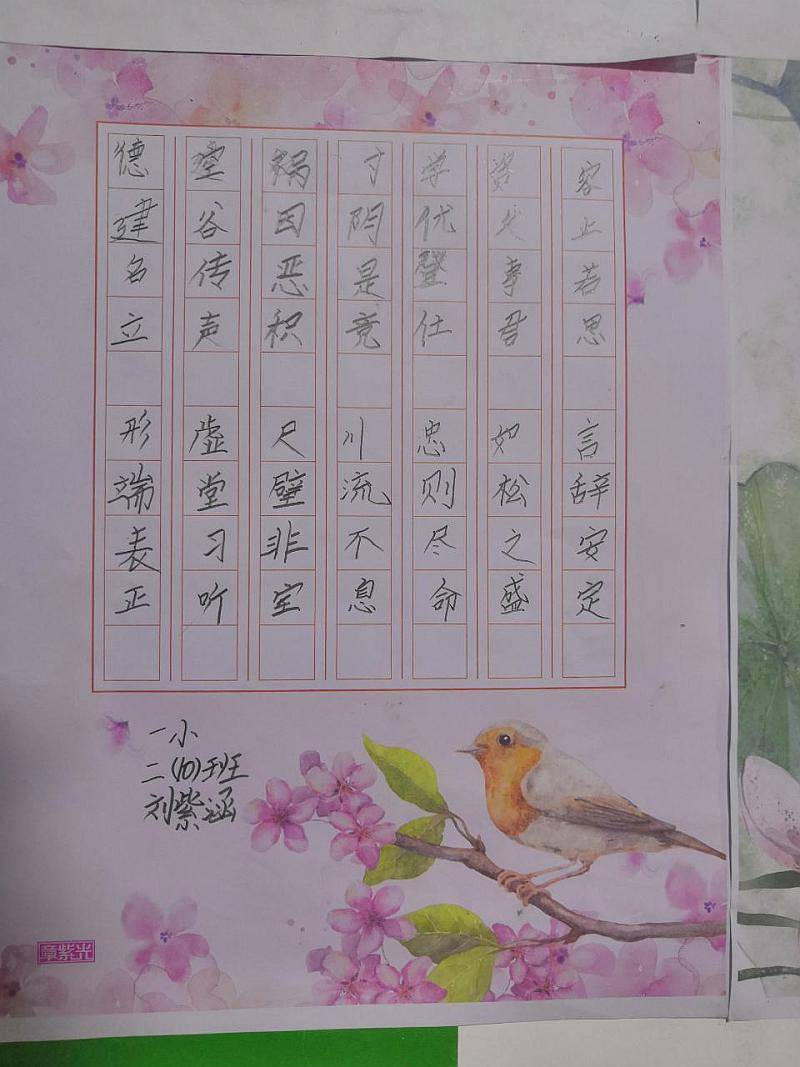 德建名立 形端表正
空谷传声 虚堂习听
祸因恶积 尺璧非宝
寸阴是竞 川流不息
学优登仕 忠则尽命
资父事君 如松之盛
容止若思 言辞安定
一小
二(10)班
刘紫涵
章紫光